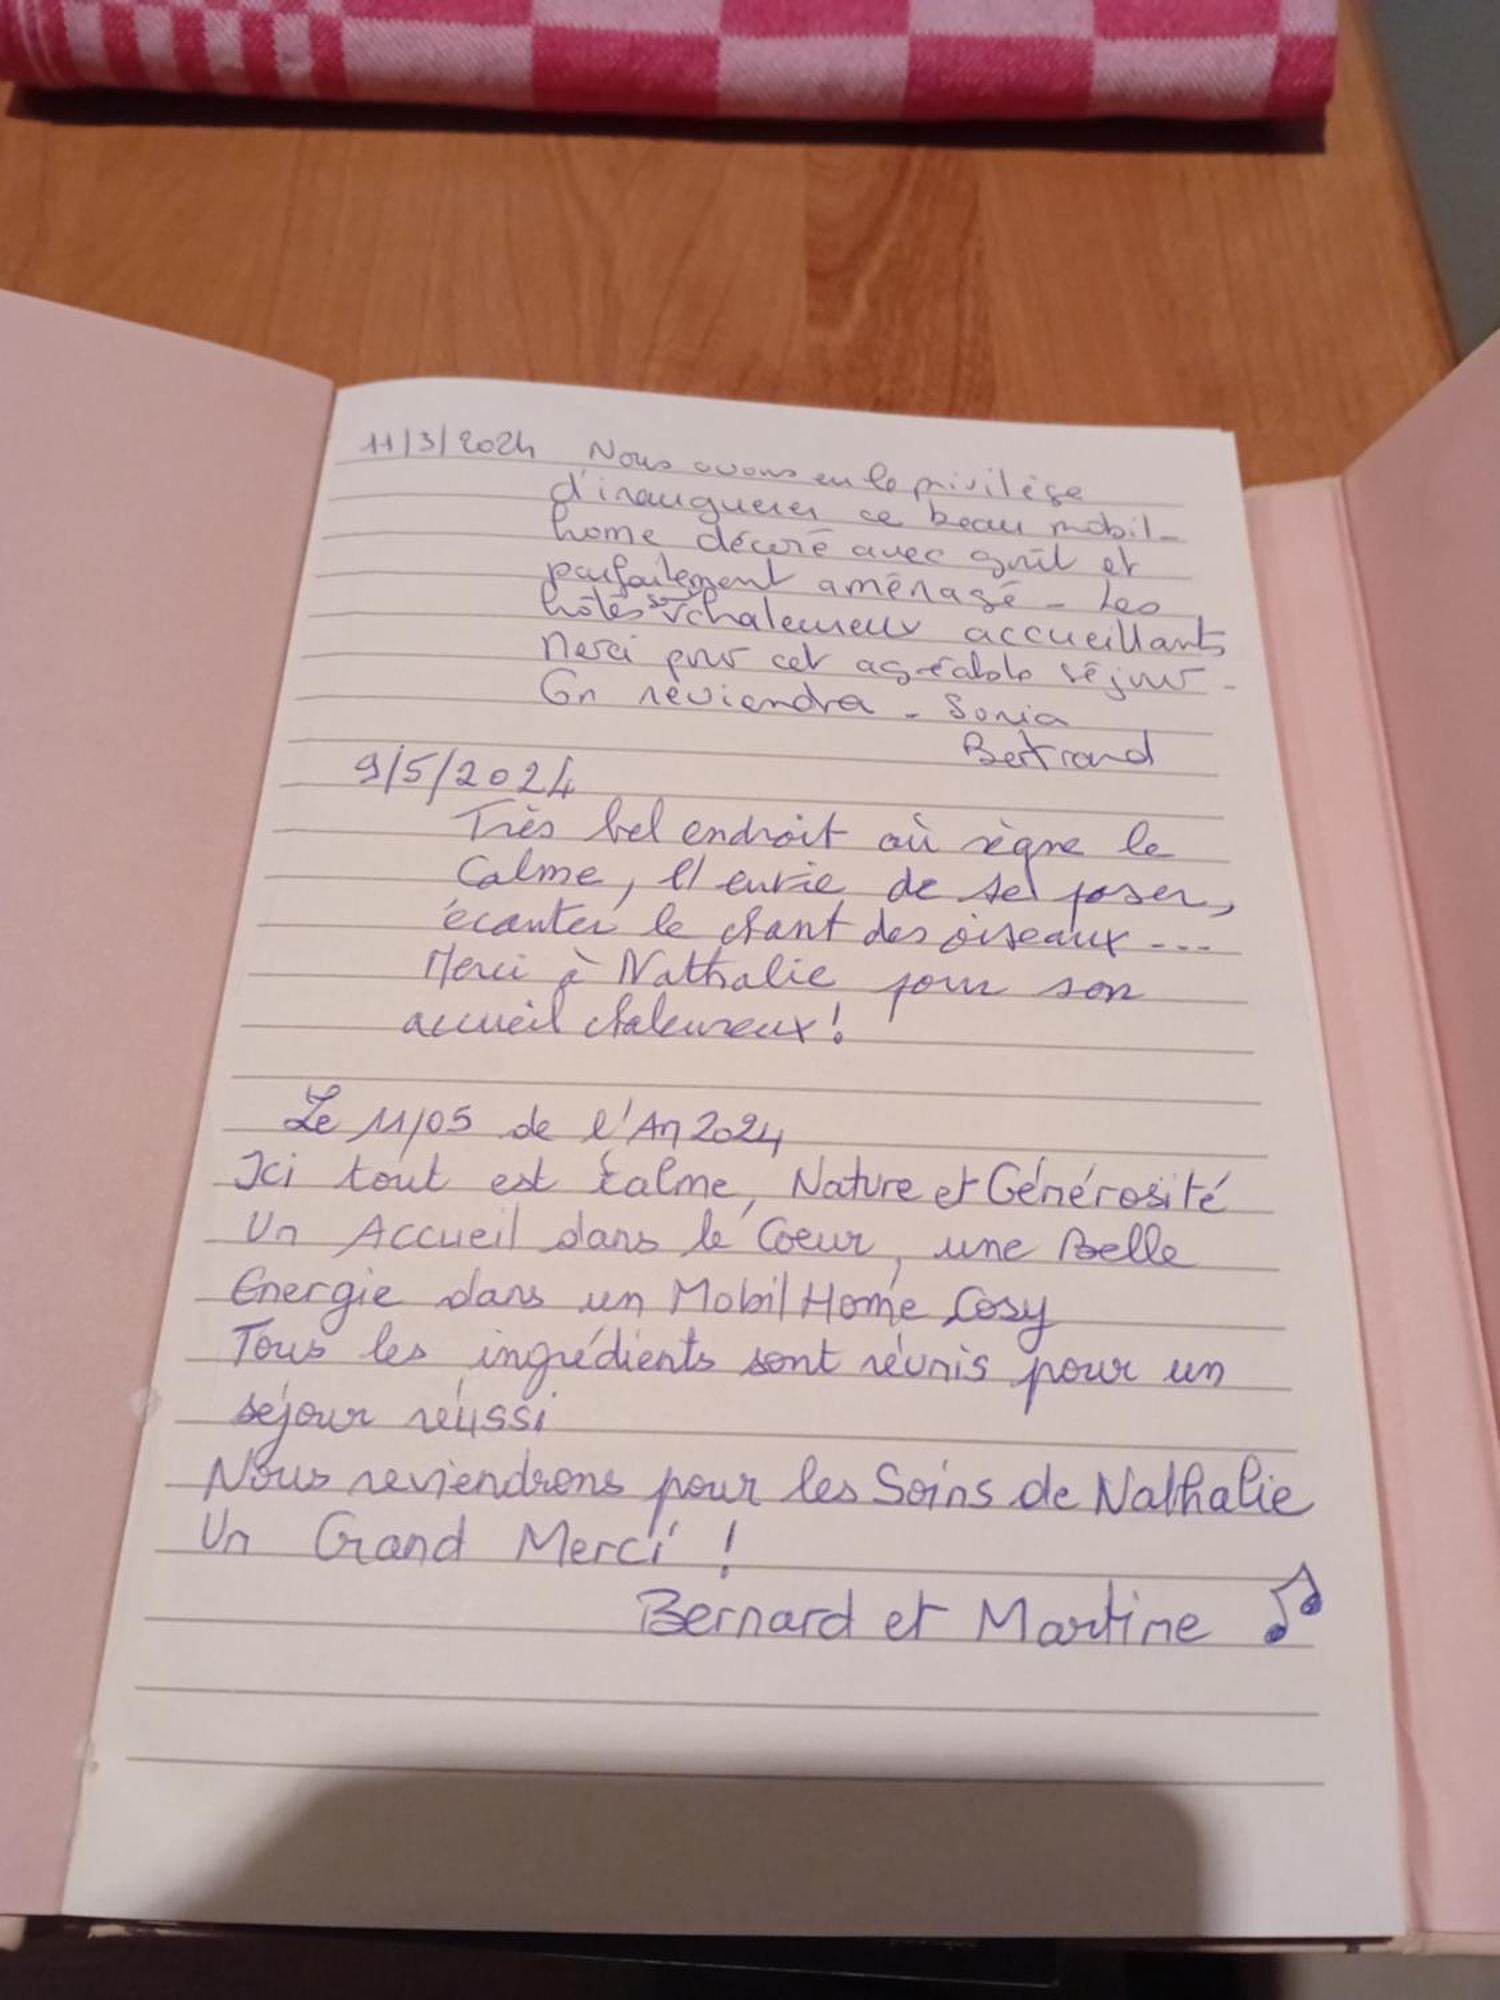 11/3/2024 Nous avons eu le privilège
d'inaugurer ce beau mobil-
home décoré avec goût et
parfaitement aménagé - Les
hôtes sont chaleureux accueillants
Merci pour cet agréable séjour -
On reviendra - Sonia
Bertrand
9/5/2024
Très bel endroit où règne le
Calme, l'envie de se poser,
écouter le chant des oiseaux ...
Merci à Nathalie pour son
accueil chaleureux !
Le 11/05 de l'An 2024
Ici tout est Calme, Nature et Générosité
Un Accueil dans le Coeur, une Belle
Energie dans un Mobil Home Cosy
Tous les ingrédients sont réunis pour un
séjour réussi
Nous reviendrons pour les Soins de Nathalie
Un Grand Merci !
Bernard et Martine